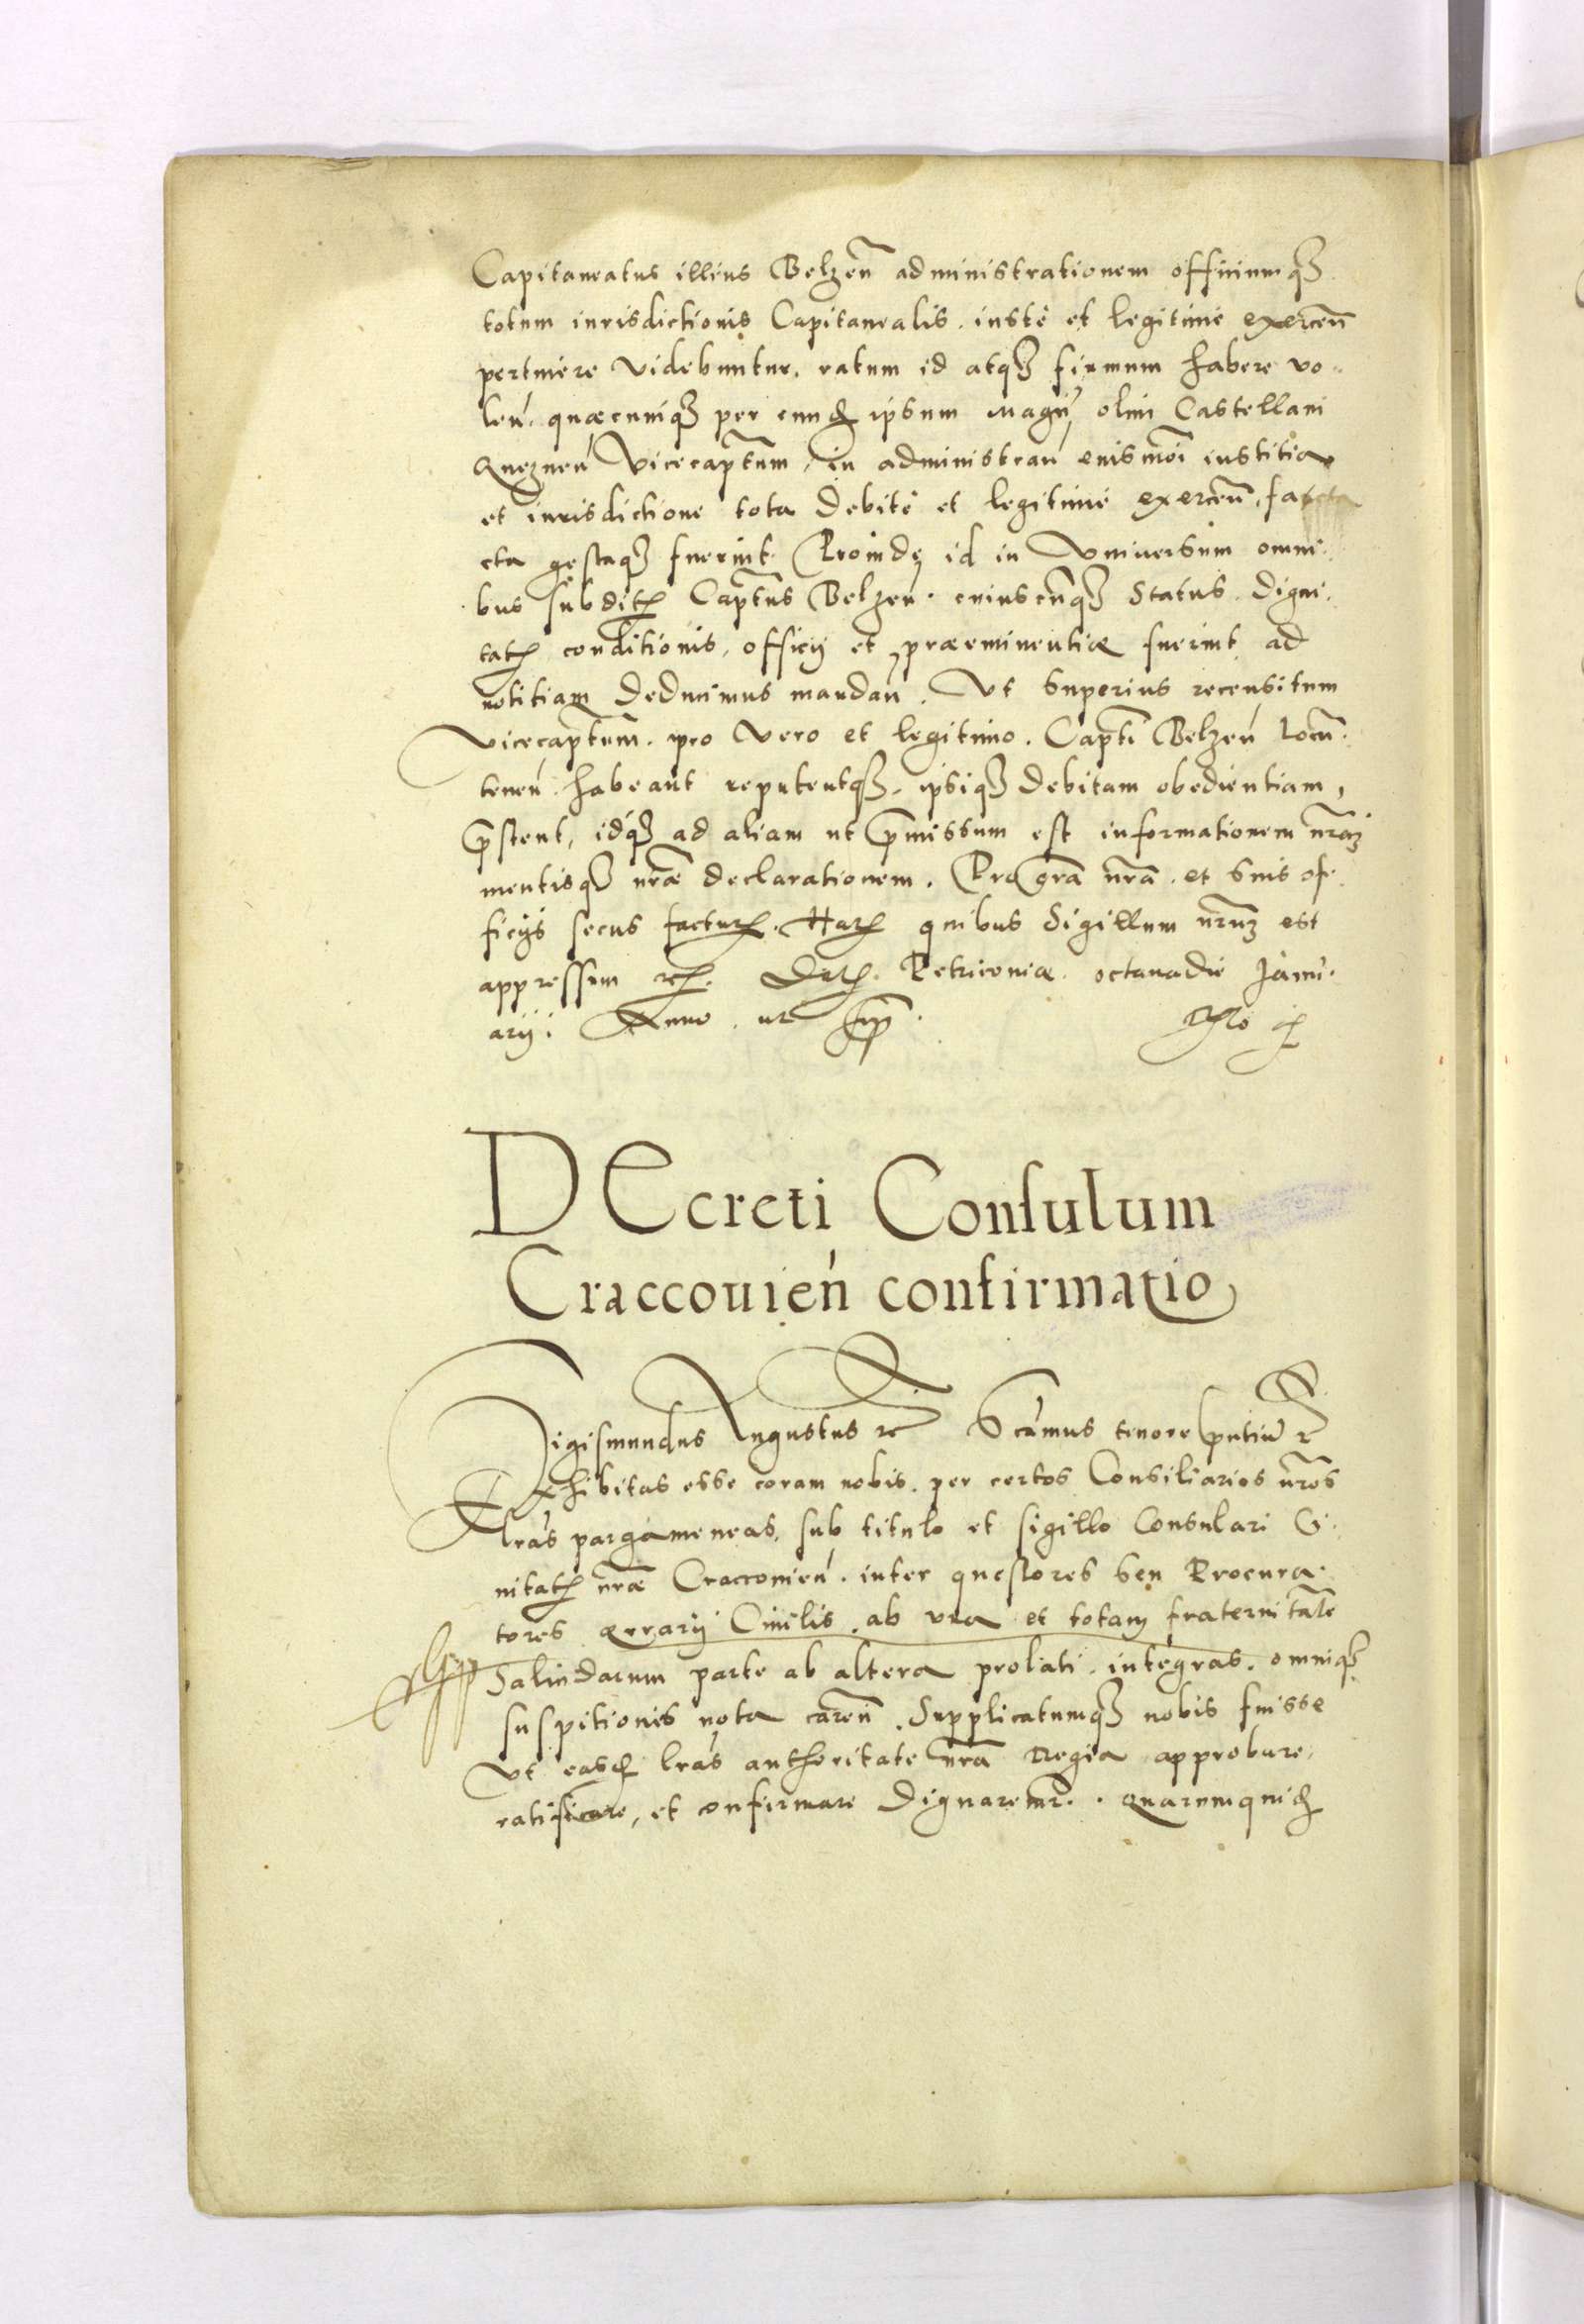 Capitaneatus illius Belzen̄ administrationem officiumq₃
totum iurisdictionis Capitanealis. iustè et legitimè exercen̄
pertinere videbuntur. ratum id atq₃ firmum habere vo-
len̄. quæcunq₃ per eund ipsum Magn̄, olim Castellani
Gneznen̄ Vicecaptum, in administran̄ euismoi iustitia
et iurisdictione tota debitè et legitimè exercen̄, facta
cta gestaq₃ fuerint. Proinde id in Vniuersum omni-
bus subdit Captus Belzen̄. cuiuscunq₃ Status. Digni-
tat conditionis, officij et præeminentiæ fuerint ad
notitiam deducimus mandan̄. Vt superius recensitum
Vicecaptum. pro vero et legitimo. Capti Belzen̄ locum-
tenen̄ habeant reputentq₃. ipsiq₃ debitam obedientiam,
p̄stent, idq₃ ad aliam ut p̄missum est informationem nr̄am
mentisq₃ nr̄æ declarationem. Pro gr̄a nr̄a. et suis of-
ficijs secus factur. Har quibus Sigillum nr̄um est
appressum Dat. Petricouiæ. octaua die Janu-
arij. Anno. ut sup̄.
DEcreti Consulum
Craccouien̄ confirmatio
Sigismundus Augustus rc Scāmus tenore pn̄tiū rc
Exhibitas esse coram nobis. per certos Consiliarios nr̄os
lr̄as pargameneas, sub titulo et sigillo Consulari Ci-
uitat nr̄æ Craccouien̄. inter quæstores seu Procura-
tores ærarij Ciuilis. ab vna et totam fraternitate
Salindarum parte ab altera prolati. integras. omniq₃
suspitionis nota caren̄. Supplicatumq₃ nobis fuisse
Vt easd lr̄as authoritate nr̄a Regia approbare,
ratificare, et confirmare dignaremr. Quarumquid